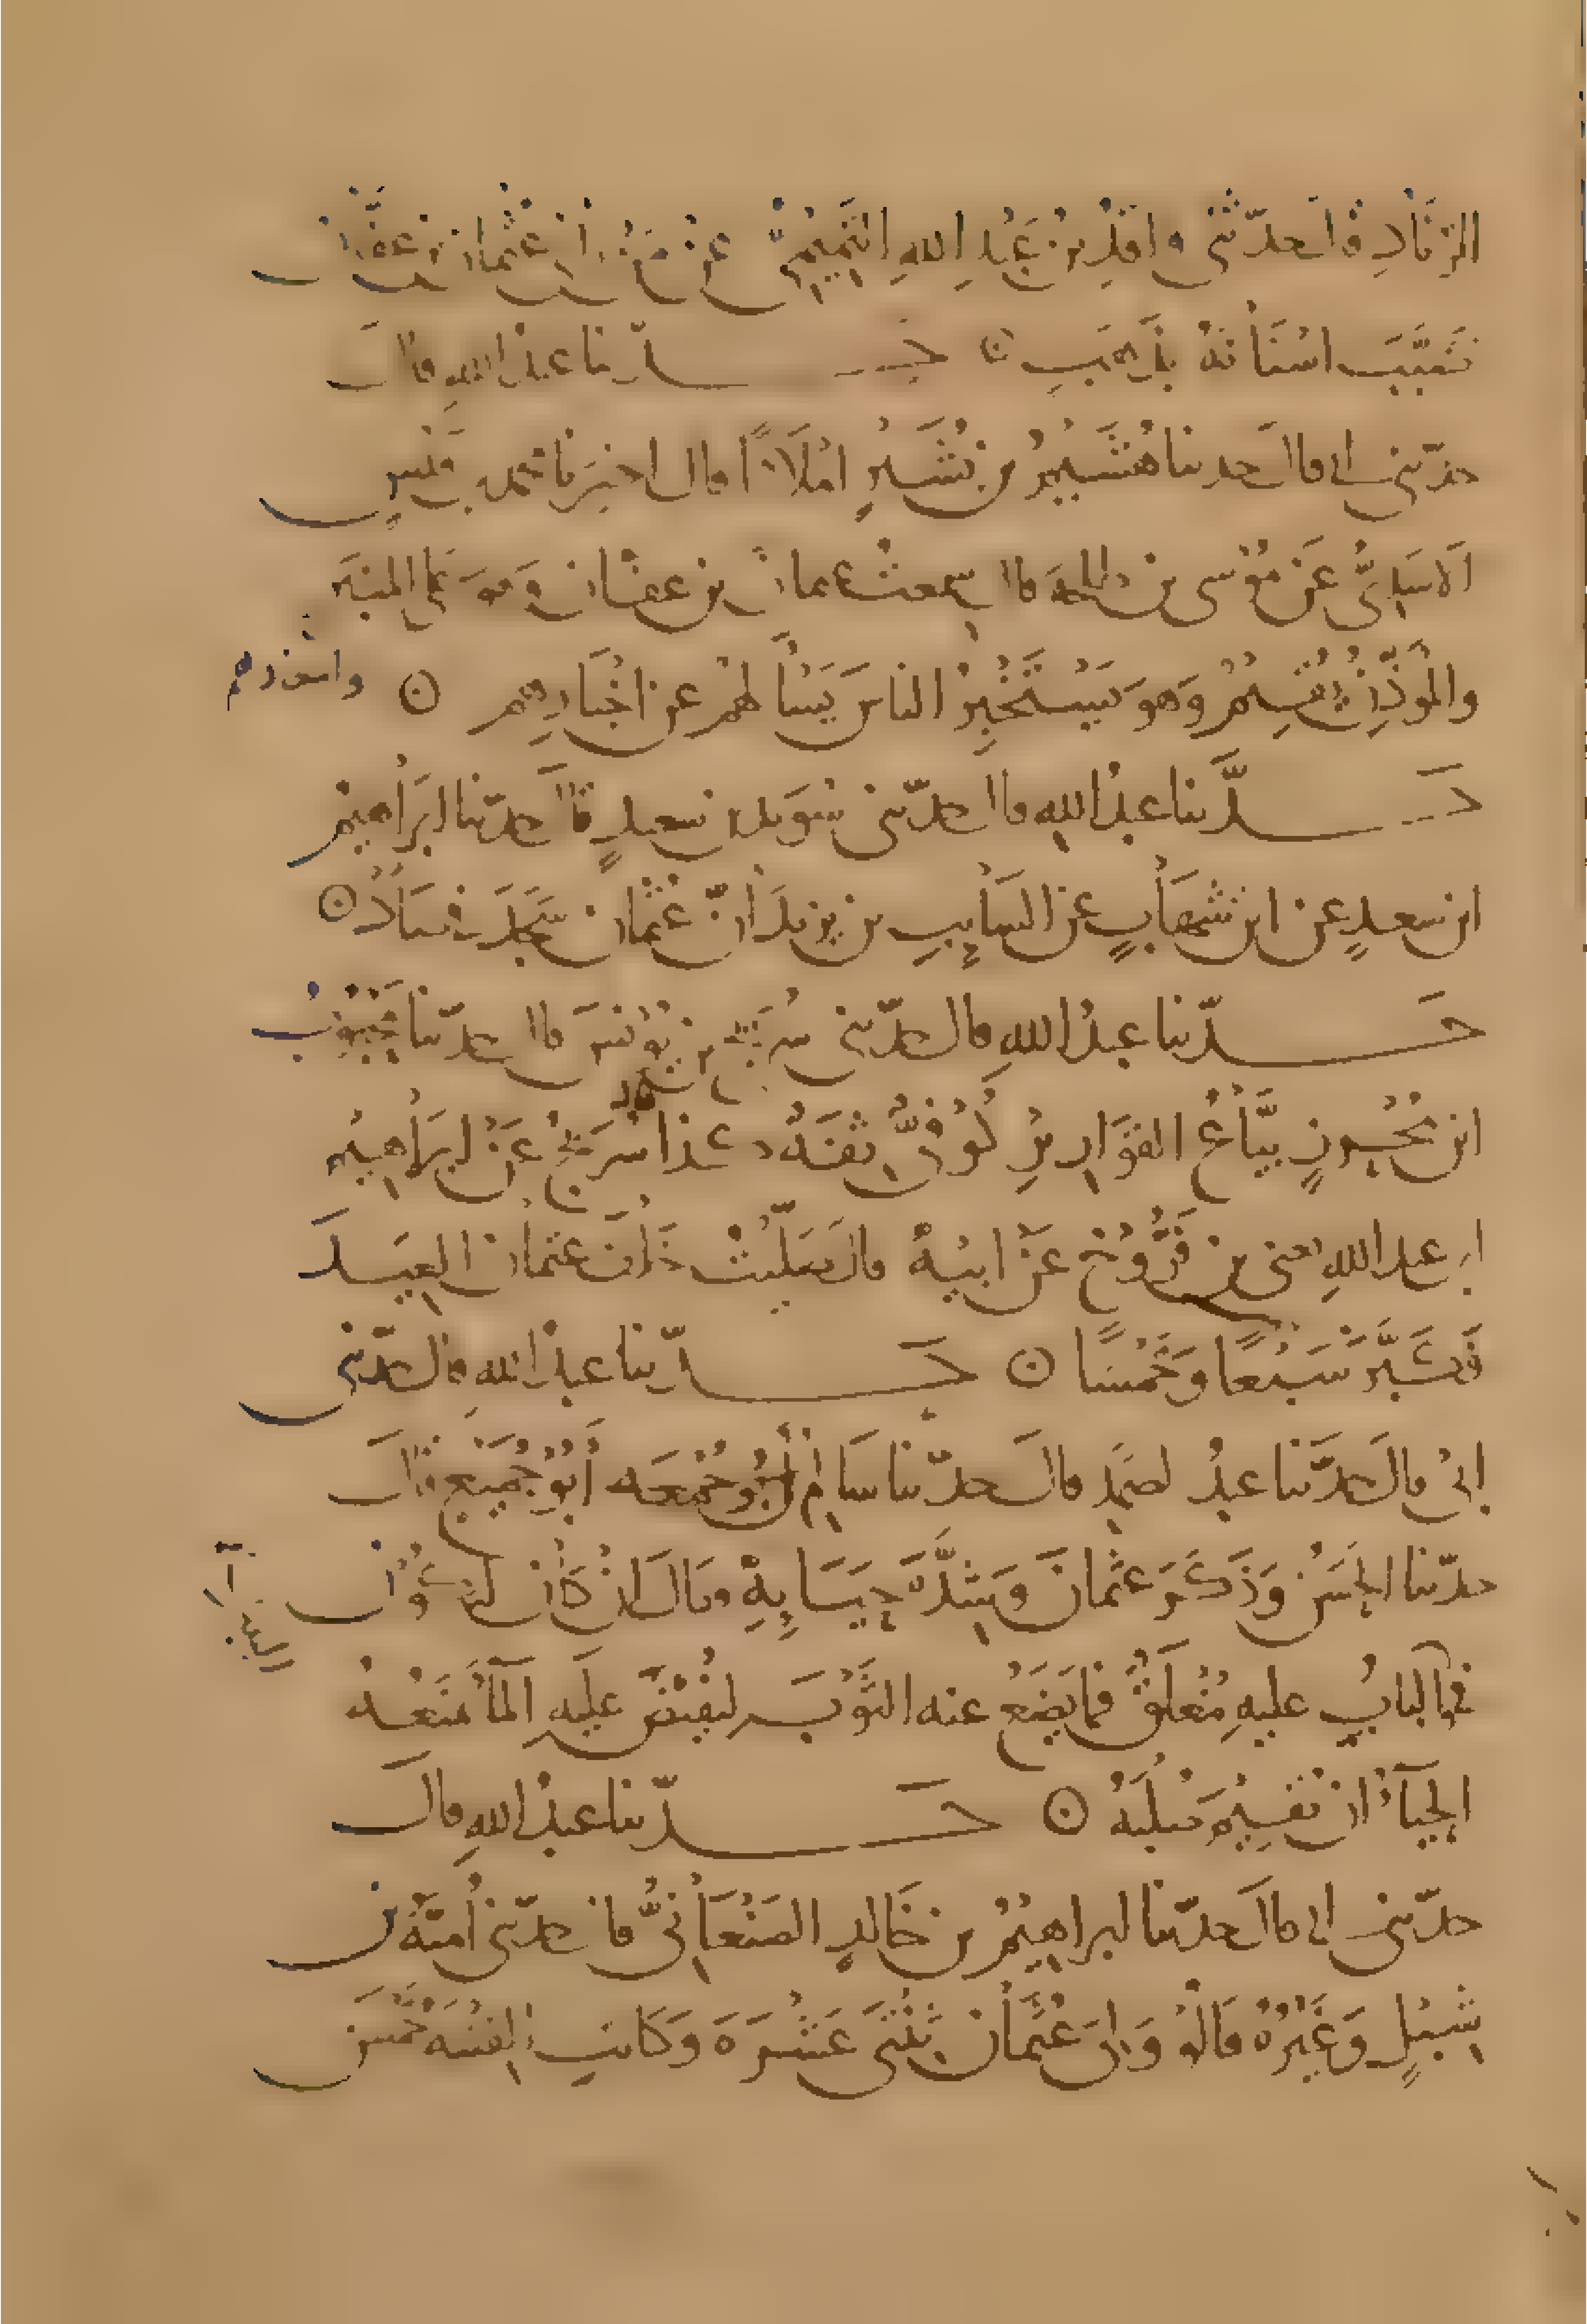 الزناد قال حدثني واقد بن عبد الله التميمي عن من رأى عثمان بن عفان
ضبب اسنانه بذهب ۞ حدثنا عبد الله قال
حدثني ابي قال حدثنا هشيم بن بشير املاءً قال اخبرنا محمد بن قيس
الاسدي عن موسى بن طلحة قال سمعت عثمان بن عفان وهو على المنبر
والمؤذن يقيم وهو يستخبر الناس يسألهم عن اخبارهم ۞
واسعارهم
حدثنا عبد الله قال حدثني سويد بن سعيد قال حدثنا ابراهيم
ابن سعد عن ابن شهاب عن السايب بن يزيد ان عثمان سجد في ص ۞
حدثنا عبد الله قال حدثني سريج بن يونس قال حدثنا محبوب
ابن محرز بياع القوارير كوفي ثقة كذا سريج عن ابراهيم
ابن عبد الله يعني بن فروخ عن ابيه قال صليت خلف عثمان العيد
فكبر سبعا وخمسا ۞ حدثنا عبد الله قال حدثني
ابي قال حدثنا عبد الصمد قال حدثنا سالم ابو جمعه ابو جميع قال
حدثنا الحسن وذكر عثمان وشدة حيايه وقال ان كان ليكون
في البيت
والباب عليه مغلق فما يضع عنه الثوب ليفيض عليه الماء يمنعه
الحياء ان يقيم صلبه ۞ حدثنا عبد الله قال
حدثني ابي قال حدثنا ابراهيم بن خالد الصنعاني قال حدثني امية بن
شبل وغيره قالوا ولي عثمان ثنتي عشرة وكانت الفتنه خمس